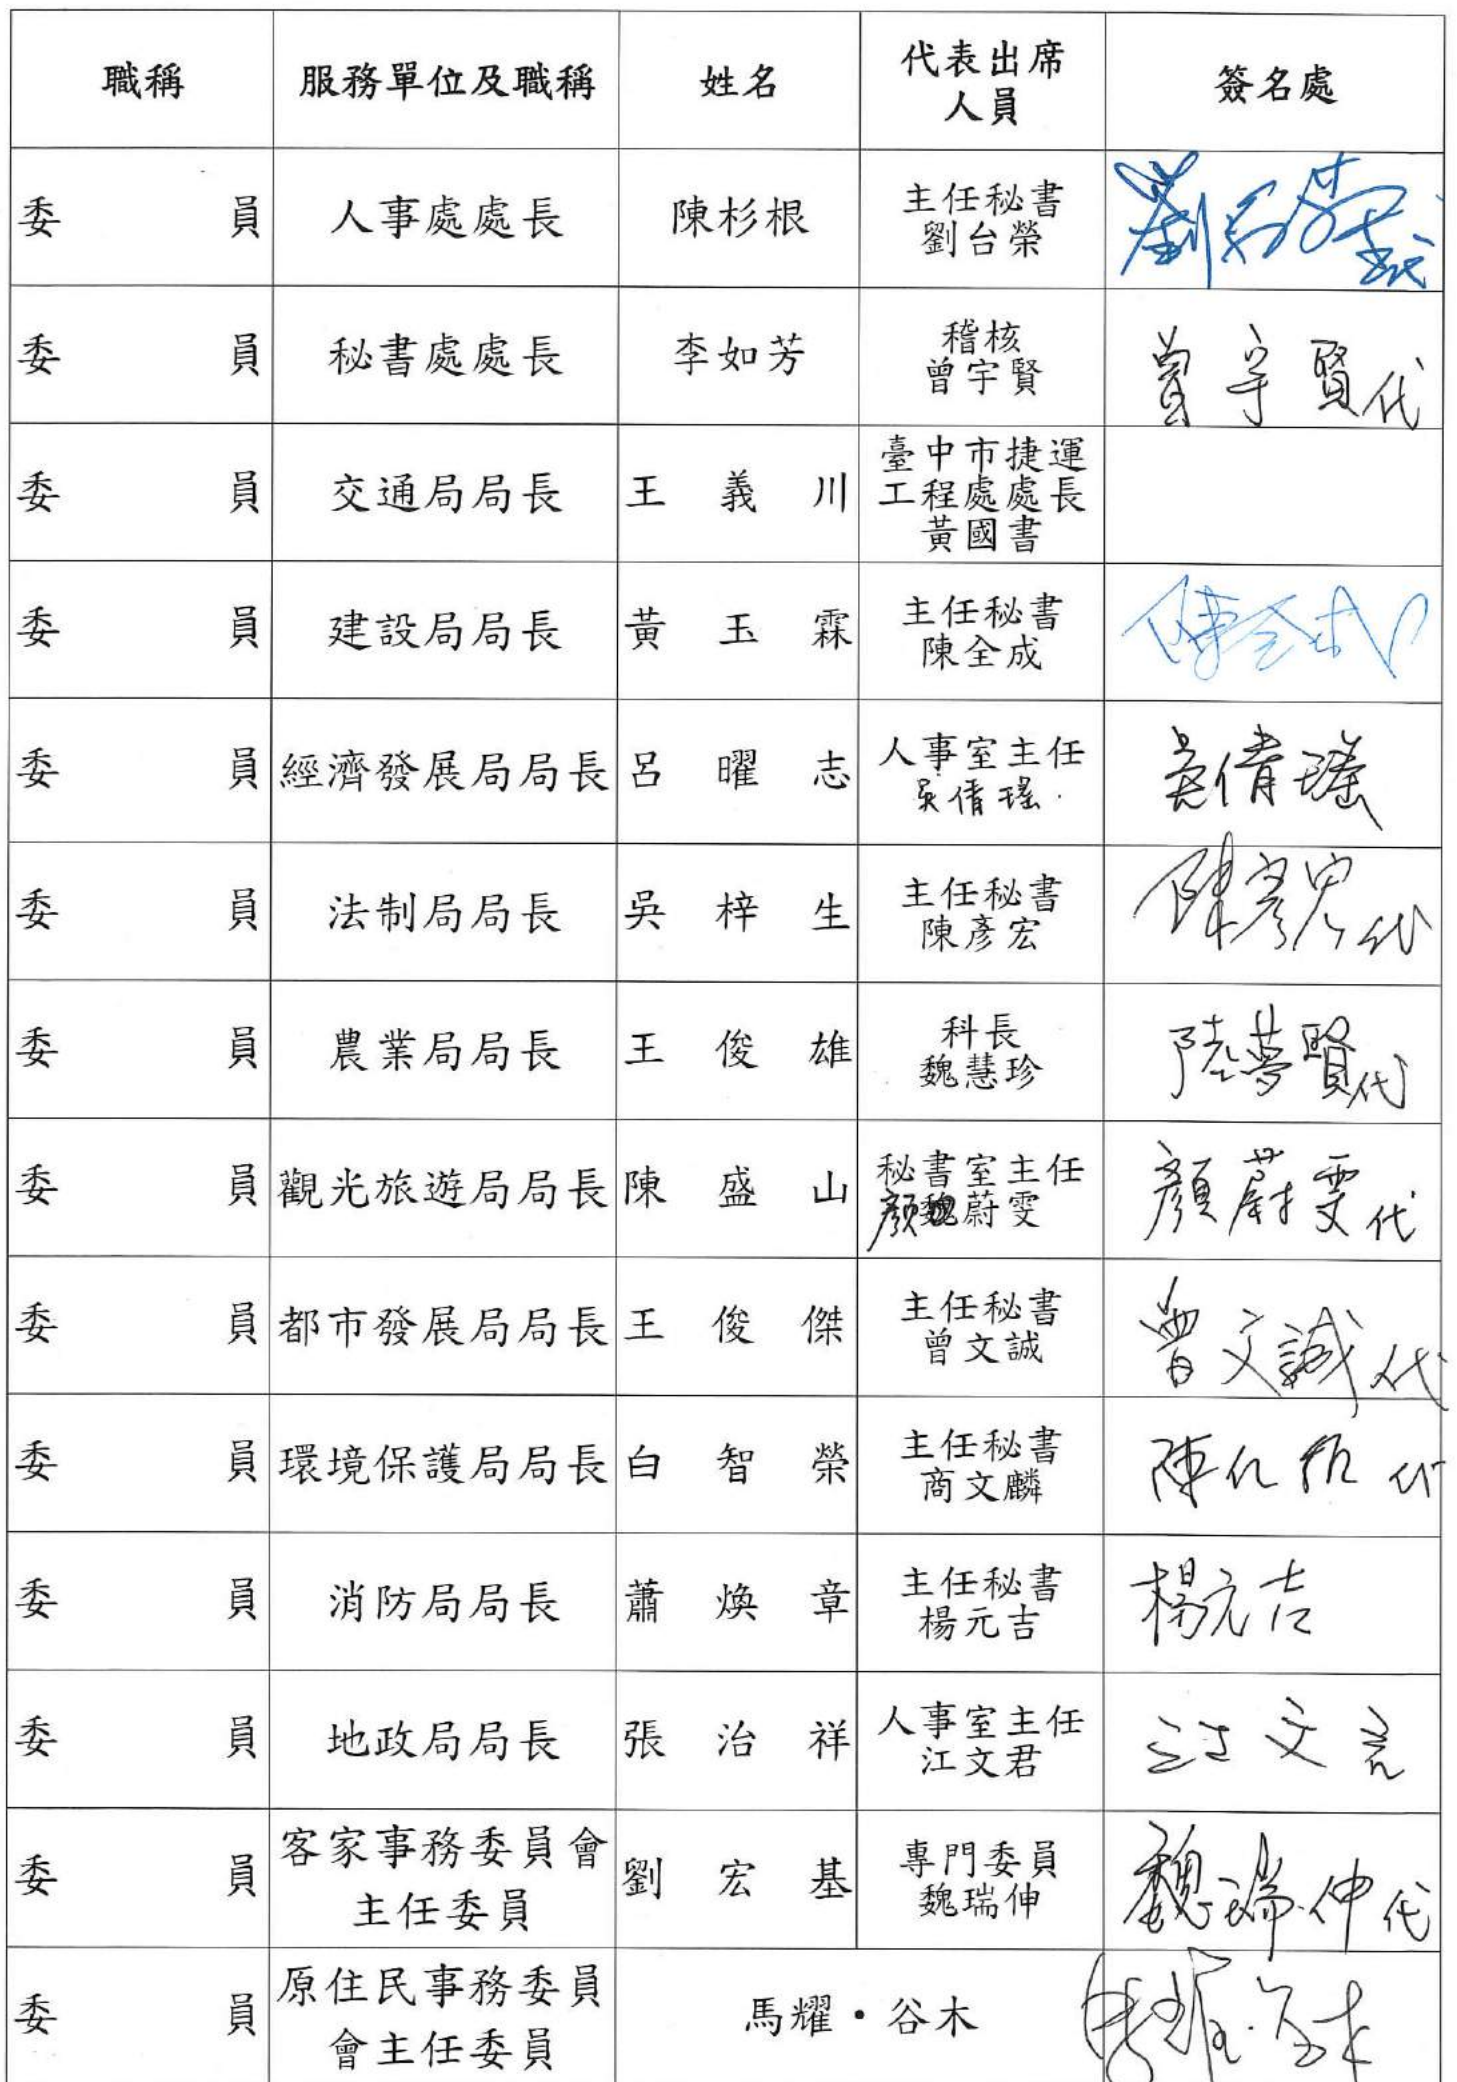 職稱 服務單位及職稱 姓名 代表出席
人員 簽名處
委員 人事處處長 陳杉根 主任秘書
劉台榮 劉台榮代
委員 秘書處處長 李如芳 稽核
曾宇賢 曾宇賢代
委員 交通局局長 王義川 臺中市捷運
工程處處長
黃國書
委員 建設局局長 黃玉霖 主任秘書
陳全成 陳全成
委員 經濟發展局局長 呂曜志 人事室主任
吳倩瑤 吳倩瑤
委員 法制局局長 吳梓生 主任秘書
陳彥宏 陳彥宏代
委員 農業局局長 王俊雄 科長
魏慧珍 陸夢賢代
委員 觀光旅遊局局長 陳盛山 秘書室主任
顏蔚雯 顏蔚雯代
委員 都市發展局局長 王俊傑 主任秘書
曾文誠 曾文誠代
委員 環境保護局局長 白智榮 主任秘書
商文麟 陳代
委員 消防局局長 蕭煥章 主任秘書
楊元吉 楊元吉
委員 地政局局長 張治祥 人事室主任
江文君 江文君
委員 客家事務委員會
主任委員 劉宏基 專門委員
魏瑞伸 魏瑞伸代
委員 原住民事務委員
會主任委員 馬耀・谷木 馬耀・谷木